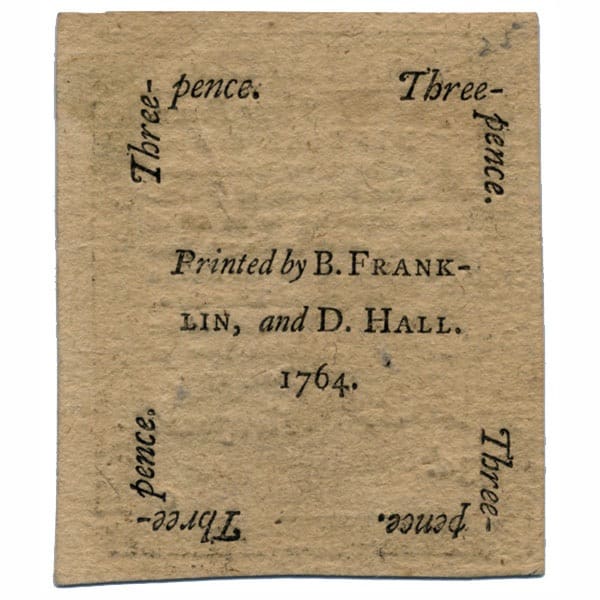 25
Three-pence.
Three-pence.
Printed by B. FRANK-
LIN, and D. HALL.
1764.
Three-pence.
Three-pence.